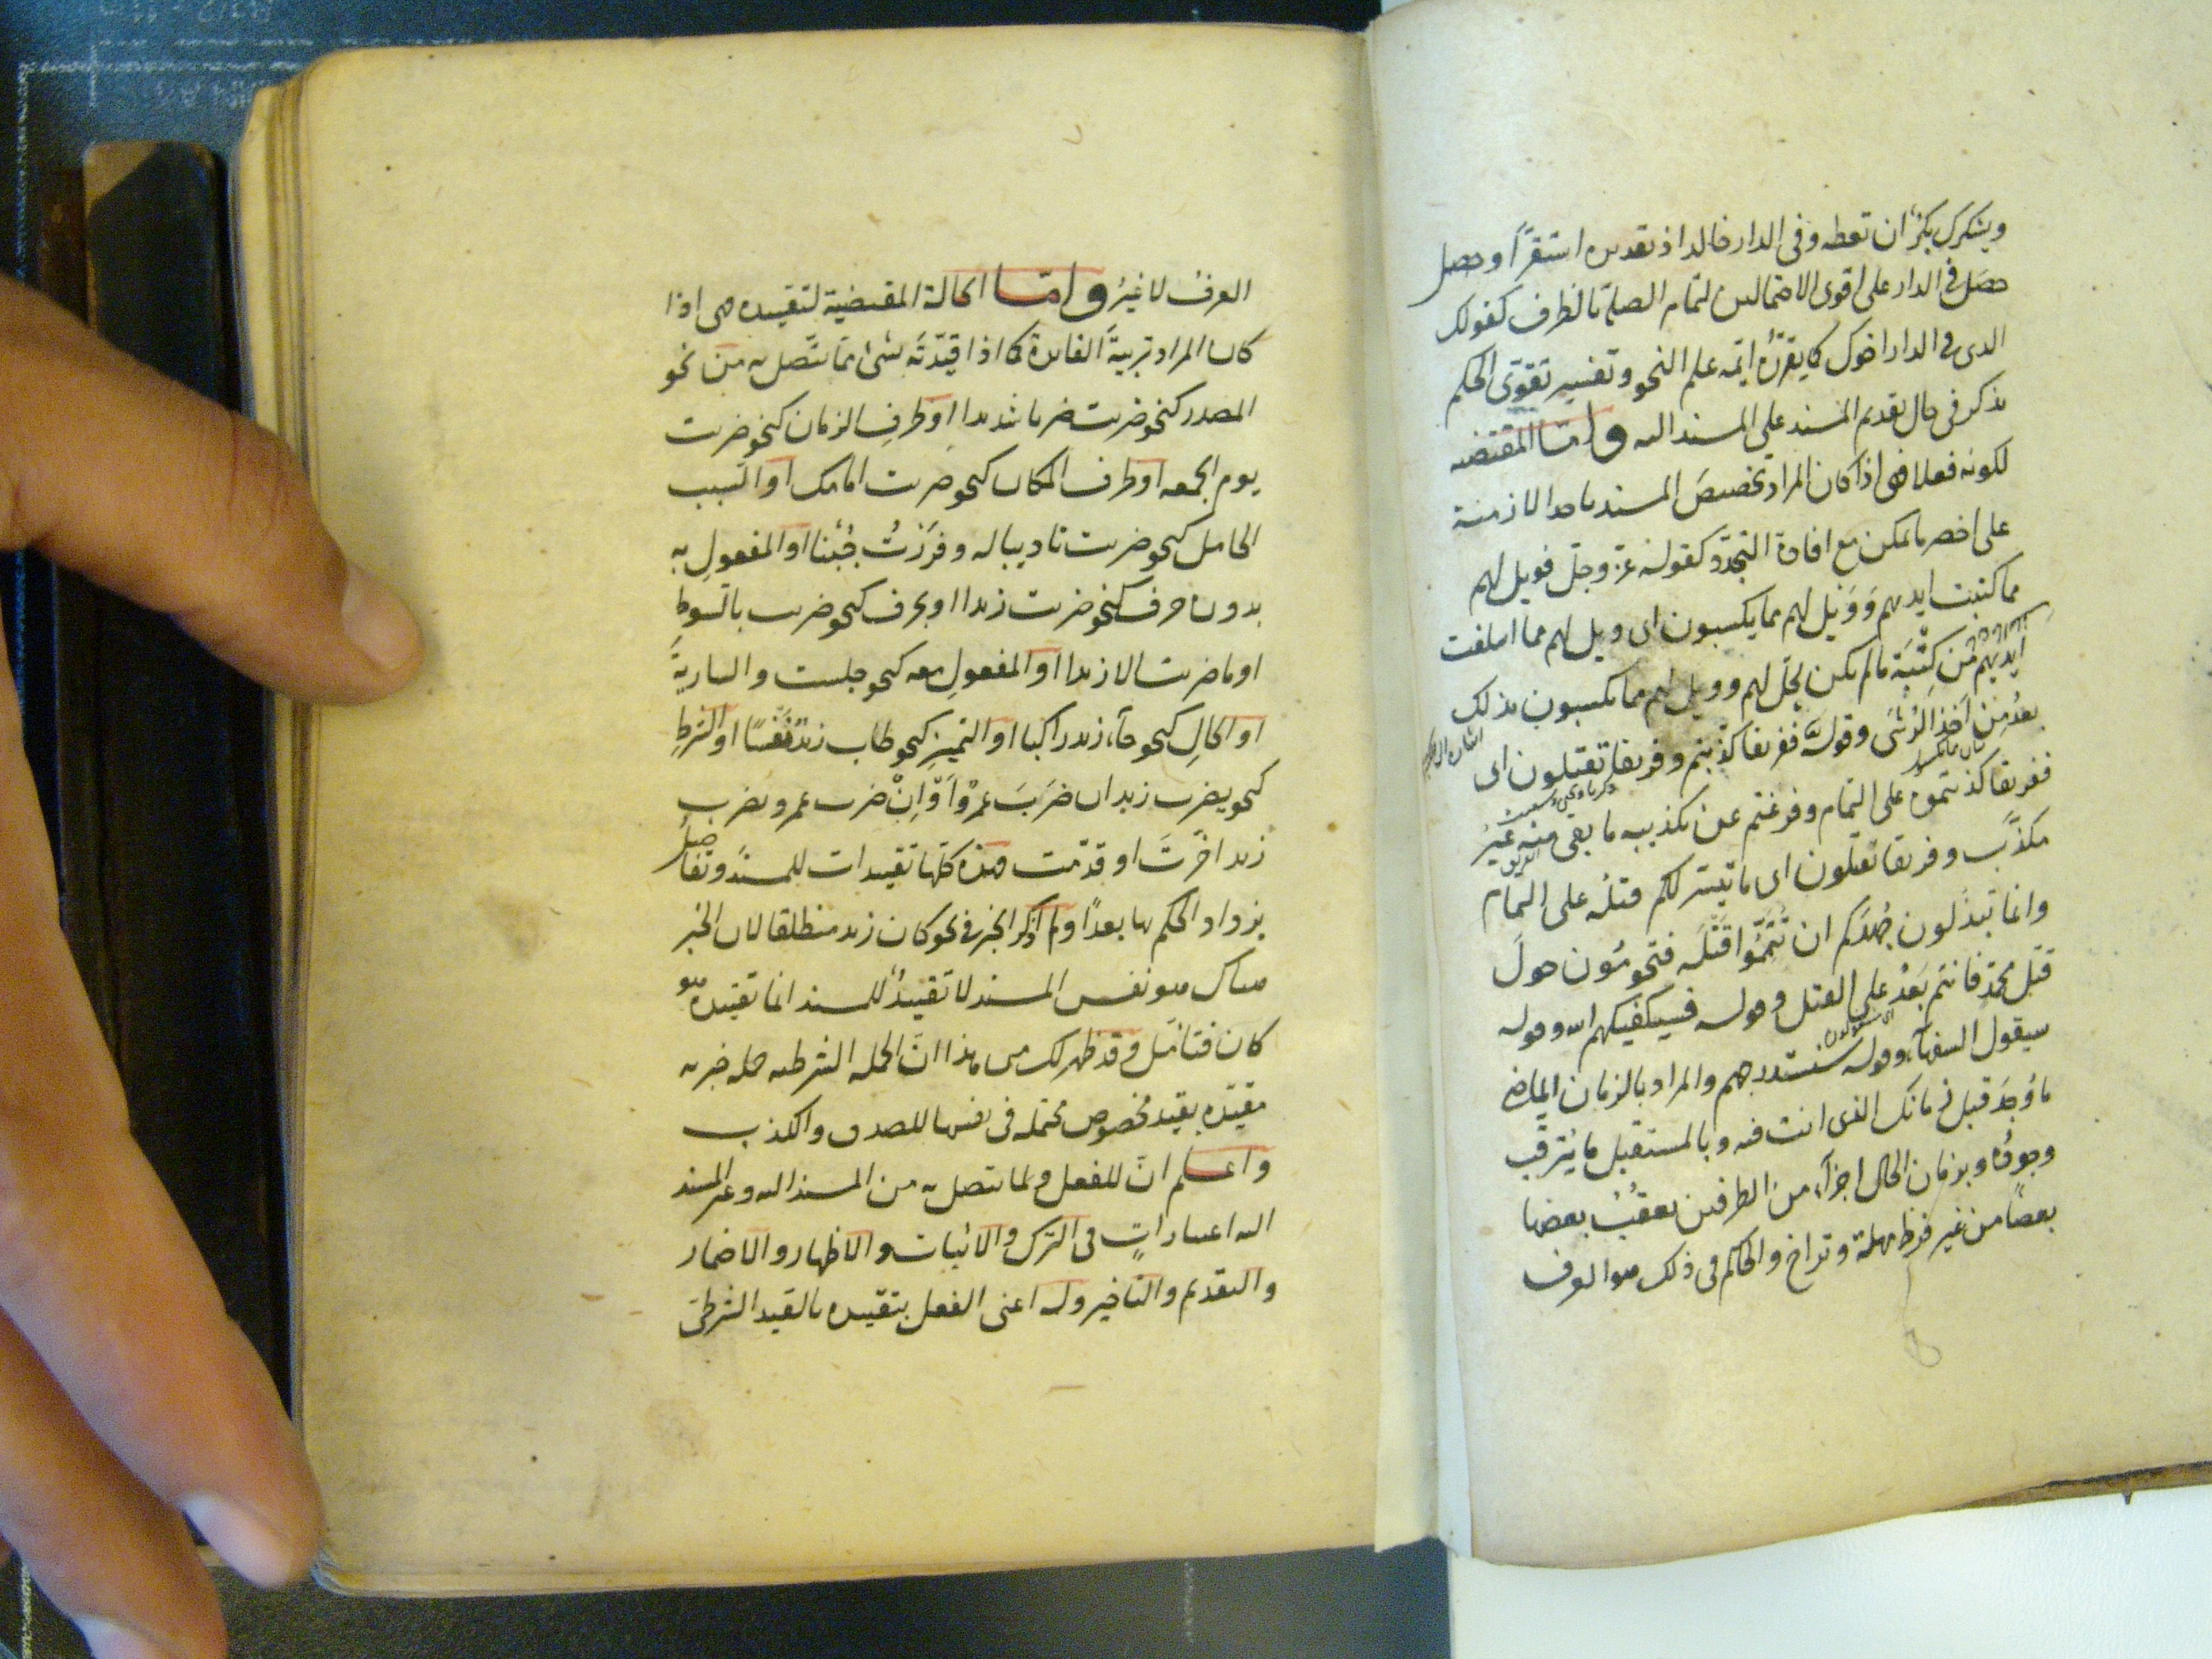 ويشكرك بكر ان تعطه وفى الدار خالد اذ تقديره استقر او حصل
حصل فى الدار على اقوى الاحتمالين لتمام الصلة بالظرف كقولك
الذى فى الدار اخوك كما يقرره ائمة علم النحو وتفسير تقوى الحكم
يذكر فى حال تقديم المسند على المسند اليه واما المقتضيه
لكونه فعلا فهى اذا كان المراد تخصيص المسند باحد الازمنة
على اخصر ما يمكن مع افادة التجدد كقوله عز وجل فويل لهم
مما كتبت ايديهم وويل لهم مما يكسبون اى ويل لهم مما اسلفت
ايديهم من كتبة ما لم يكن يحل لهم وويل لهم مما يكسبون بذلك
بعد من اخذ الرشى وقوله ففريقا كذبتم وفريقا تقتلون اى
ففريقا كذبتموه على التمام وفرغتم عن تكذيبه ما بقى منه غير
مكذب وفريقا تقتلون اى ما تيسر لكم قتله على التمام
وانما تبذلون جهدكم ان تتموا قتله فتحومون حول
قتل محمد فانتم بعد على القتل وقوله فسيكفيكهم الله وقوله
سيقول السفهآء وقوله سنستدرجهم والمراد بالزمان الماضى
ما وجد قبل زمانك الذى انت فيه وبالمستقبل ما يترقب
وجوده وبزمان الحال اجزآء من الطرفين يعقب بعضها
بعضا من غير فرط مهلة وتراخ والحاكم فى ذلك هو العرف
العرف لا غير واما الحالة المقتضية لتقييده هى اذا
كان المراد تربية الفايدة كما اذا قيدته بشئ مما يتصل به من نحو
المصدر كنحو ضربت ضربا شديدا او ظرف الزمان كنحو ضربت
يوم الجمعه او ظرف المكان كنحو ضربت امامك او السبب
الحامل كنحو ضربت تاديبا له وفررت جبنا او المفعول به
بدون حرف كنحو ضربت زيدا او بحرف كنحو ضربت بالسوط
او ما ضربت الا زيدا او المفعول معه كنحو جلست والسارية
او الحال كنحو جآء زيد راكبا او التمييز كنحو طاب زيد نفسا او الشرط
كنحو يضرب زيد ان ضرب عمرو او ان ضرب عمرو يضرب
زيد اخرت او قدمت فهذه كلها تقييدات للمسند وتفاصيل
يزداد الحكم بها بعدا ولم اذكر الخبر فى نحو كان زيد منطلقا لان الخبر
هناك هو نفس المسند لا تقييد للمسند انما تقييده هو
كان فتامل وقد ظهر لك من هذا ان الجمله الشرطيه جمله خبريه
مقيده بقيد مخصوص محتمله فى نفسها للصدق والكذب
واعلم ان للفعل ولما يتصل به من المسند اليه وغير المسند
اليه اعتبارات فى الترك والاثبات والاظهار والاضمار
والتقديم والتاخير وله اعنى الفعل بتقييده بالقيد الشرطى